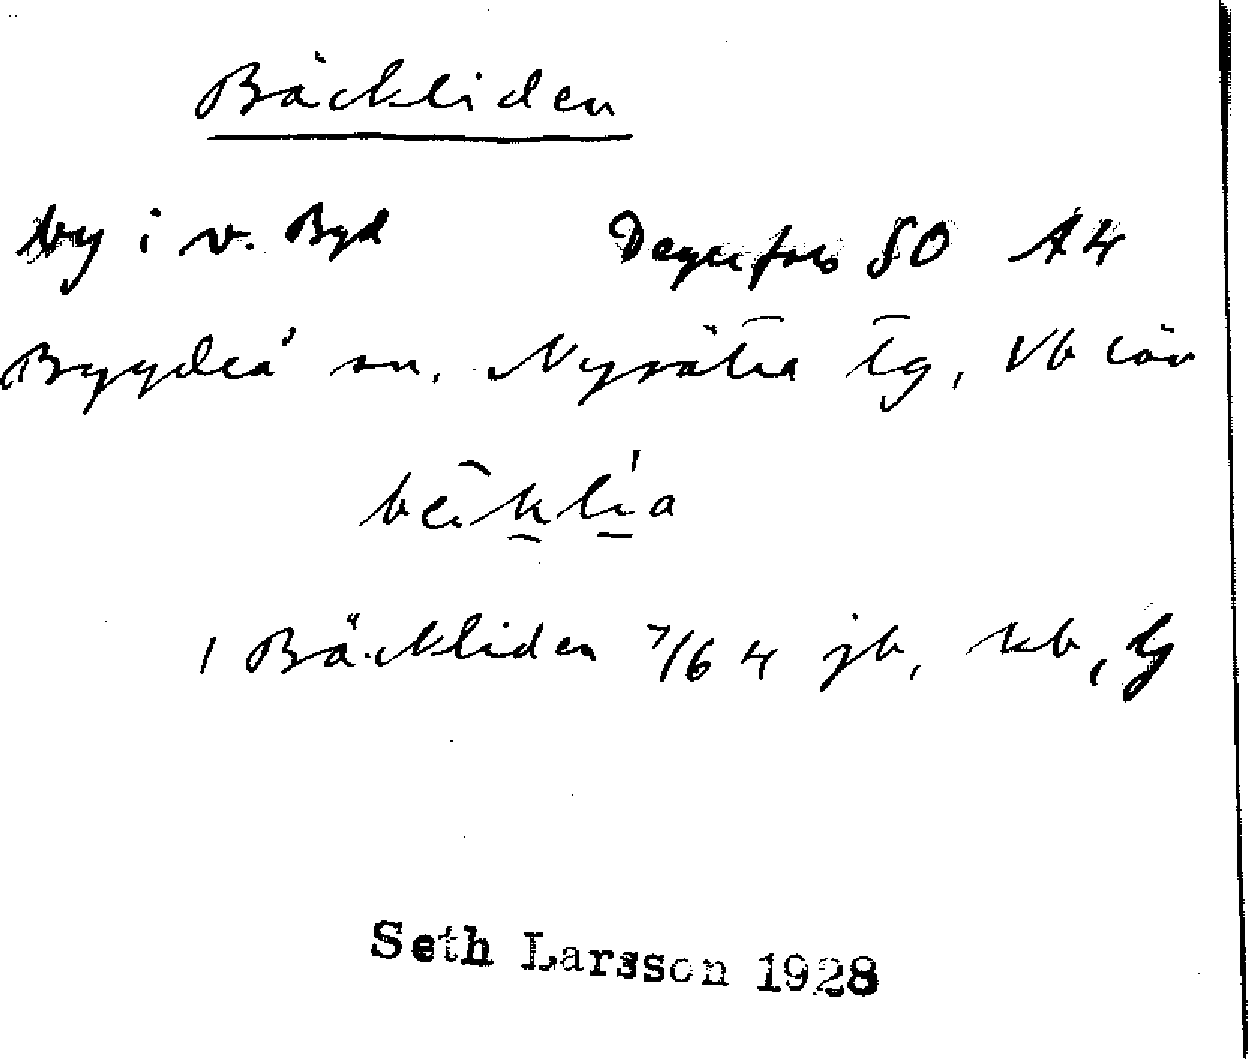 Bäckliden
by i v. Byd Degerfors 80 A4
Bygdeå sn, Nysätra tg, Vb län
1 Bäckliden 7/64 jb, kb, tg
Seth Larsson 1928